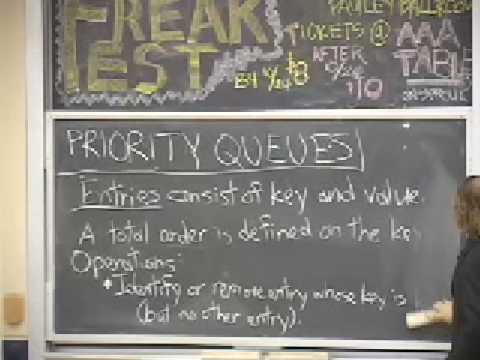 FREAK
FEST
PAULEY BALLROOM
TICKETS @
BY 4/24 $8
AFTER
$10
AAA
TABLE
ON SPROUL
PRIORITY QUEUES
Entries consist of key and value.
A total order is defined on the key
Operations:
* Identify or remove entry whose key is
(but no other entry).